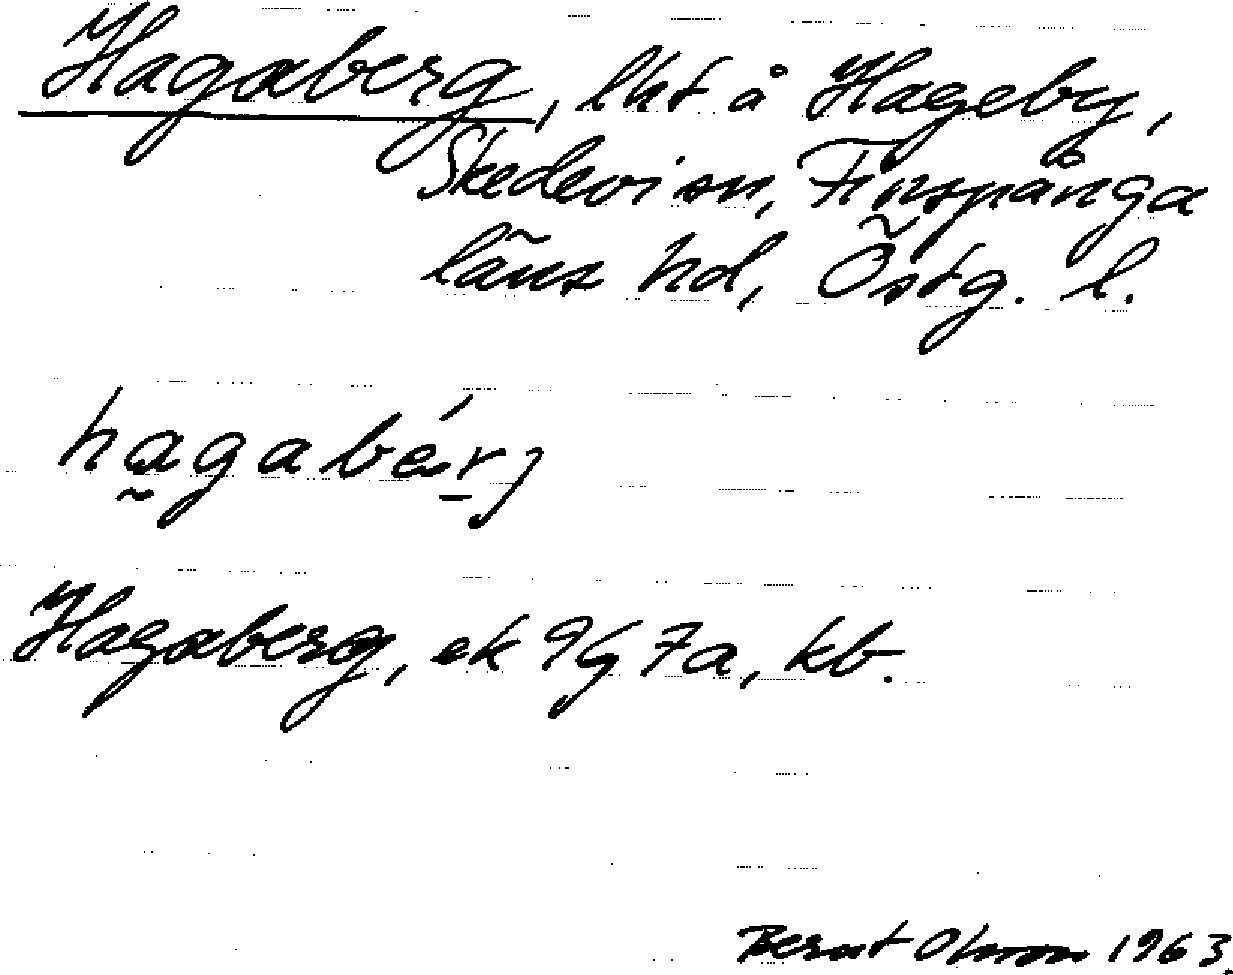 Hagaberg, lht å Hageby,
Skedevi sn, Finspånga
läns hd, Östg. l.
hagabérj
Hagaberg, ek 9G 7a, kb.
Bernt Olsson 1963.